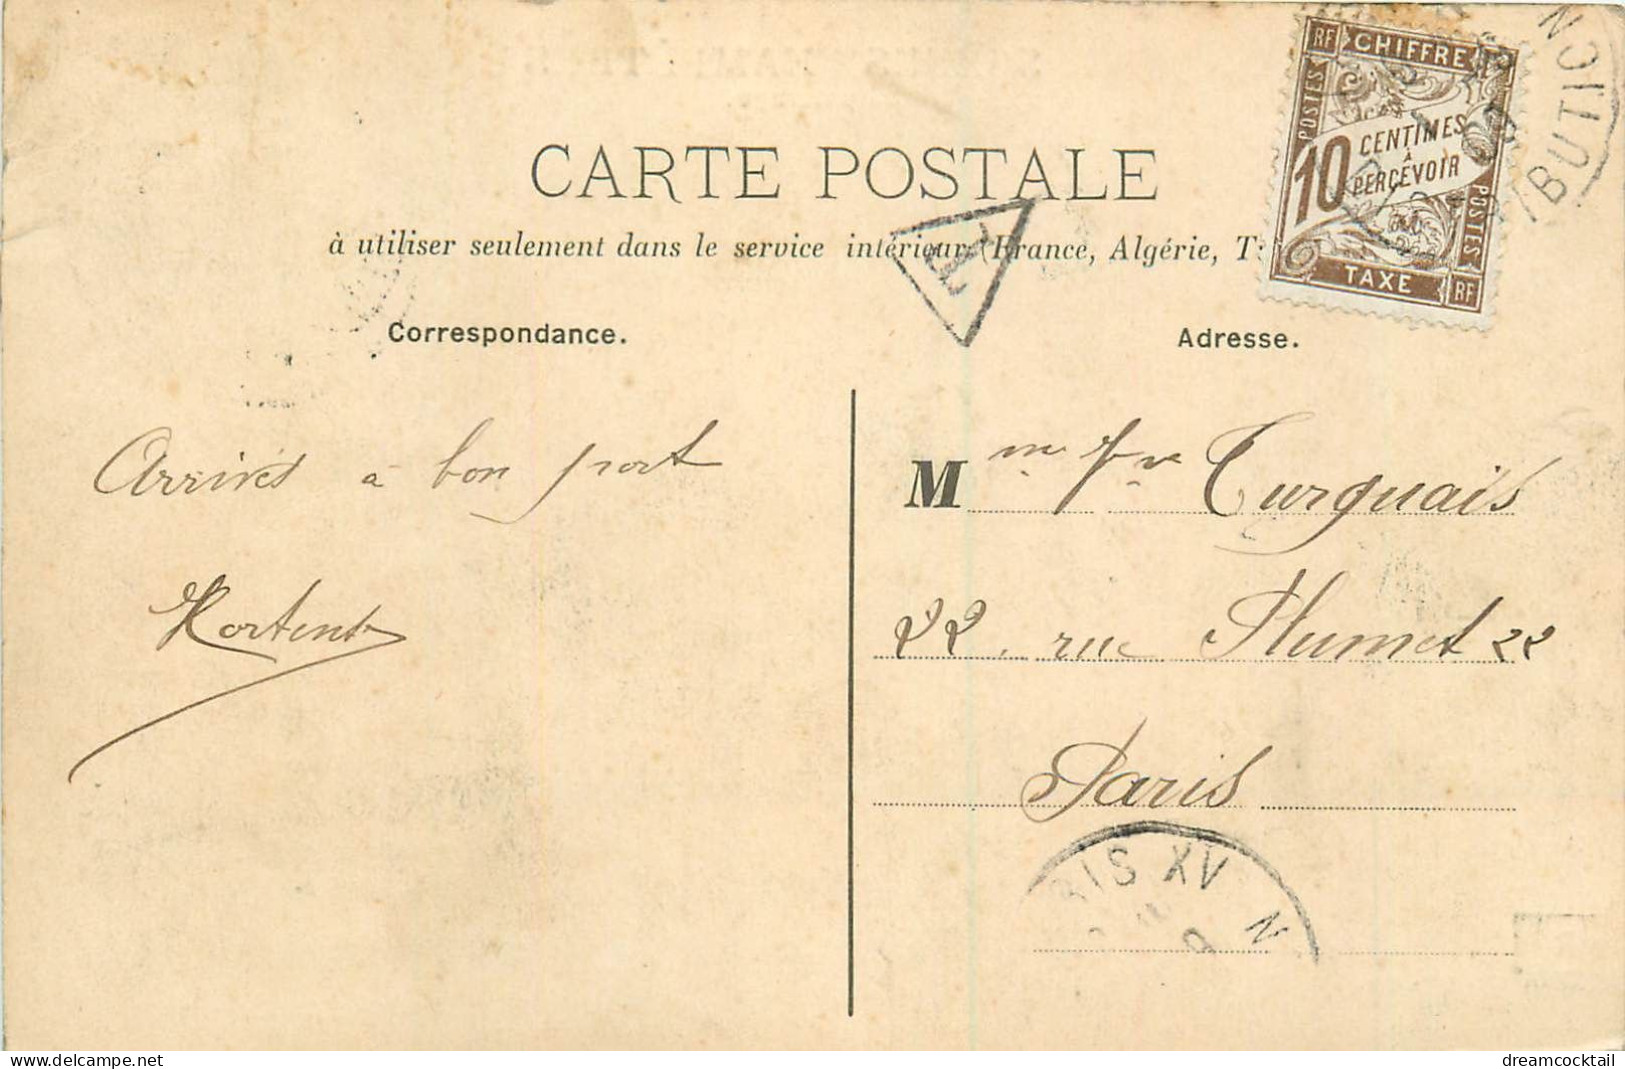 CARTE POSTALE
à utiliser seulement dans le service intérieur (France, Algérie, T
RF CHIFFRE
POSTES
10 CENTIMES
À
PERCEVOIR
POSTES
TAXE RF
BUTION
T
Correspondance.
Adresse.
Arrivés à bon port
M me Vve Turquais
22. rue Plumet 22
Paris
RIS XV
N
delcampe.net
dreamcocktail